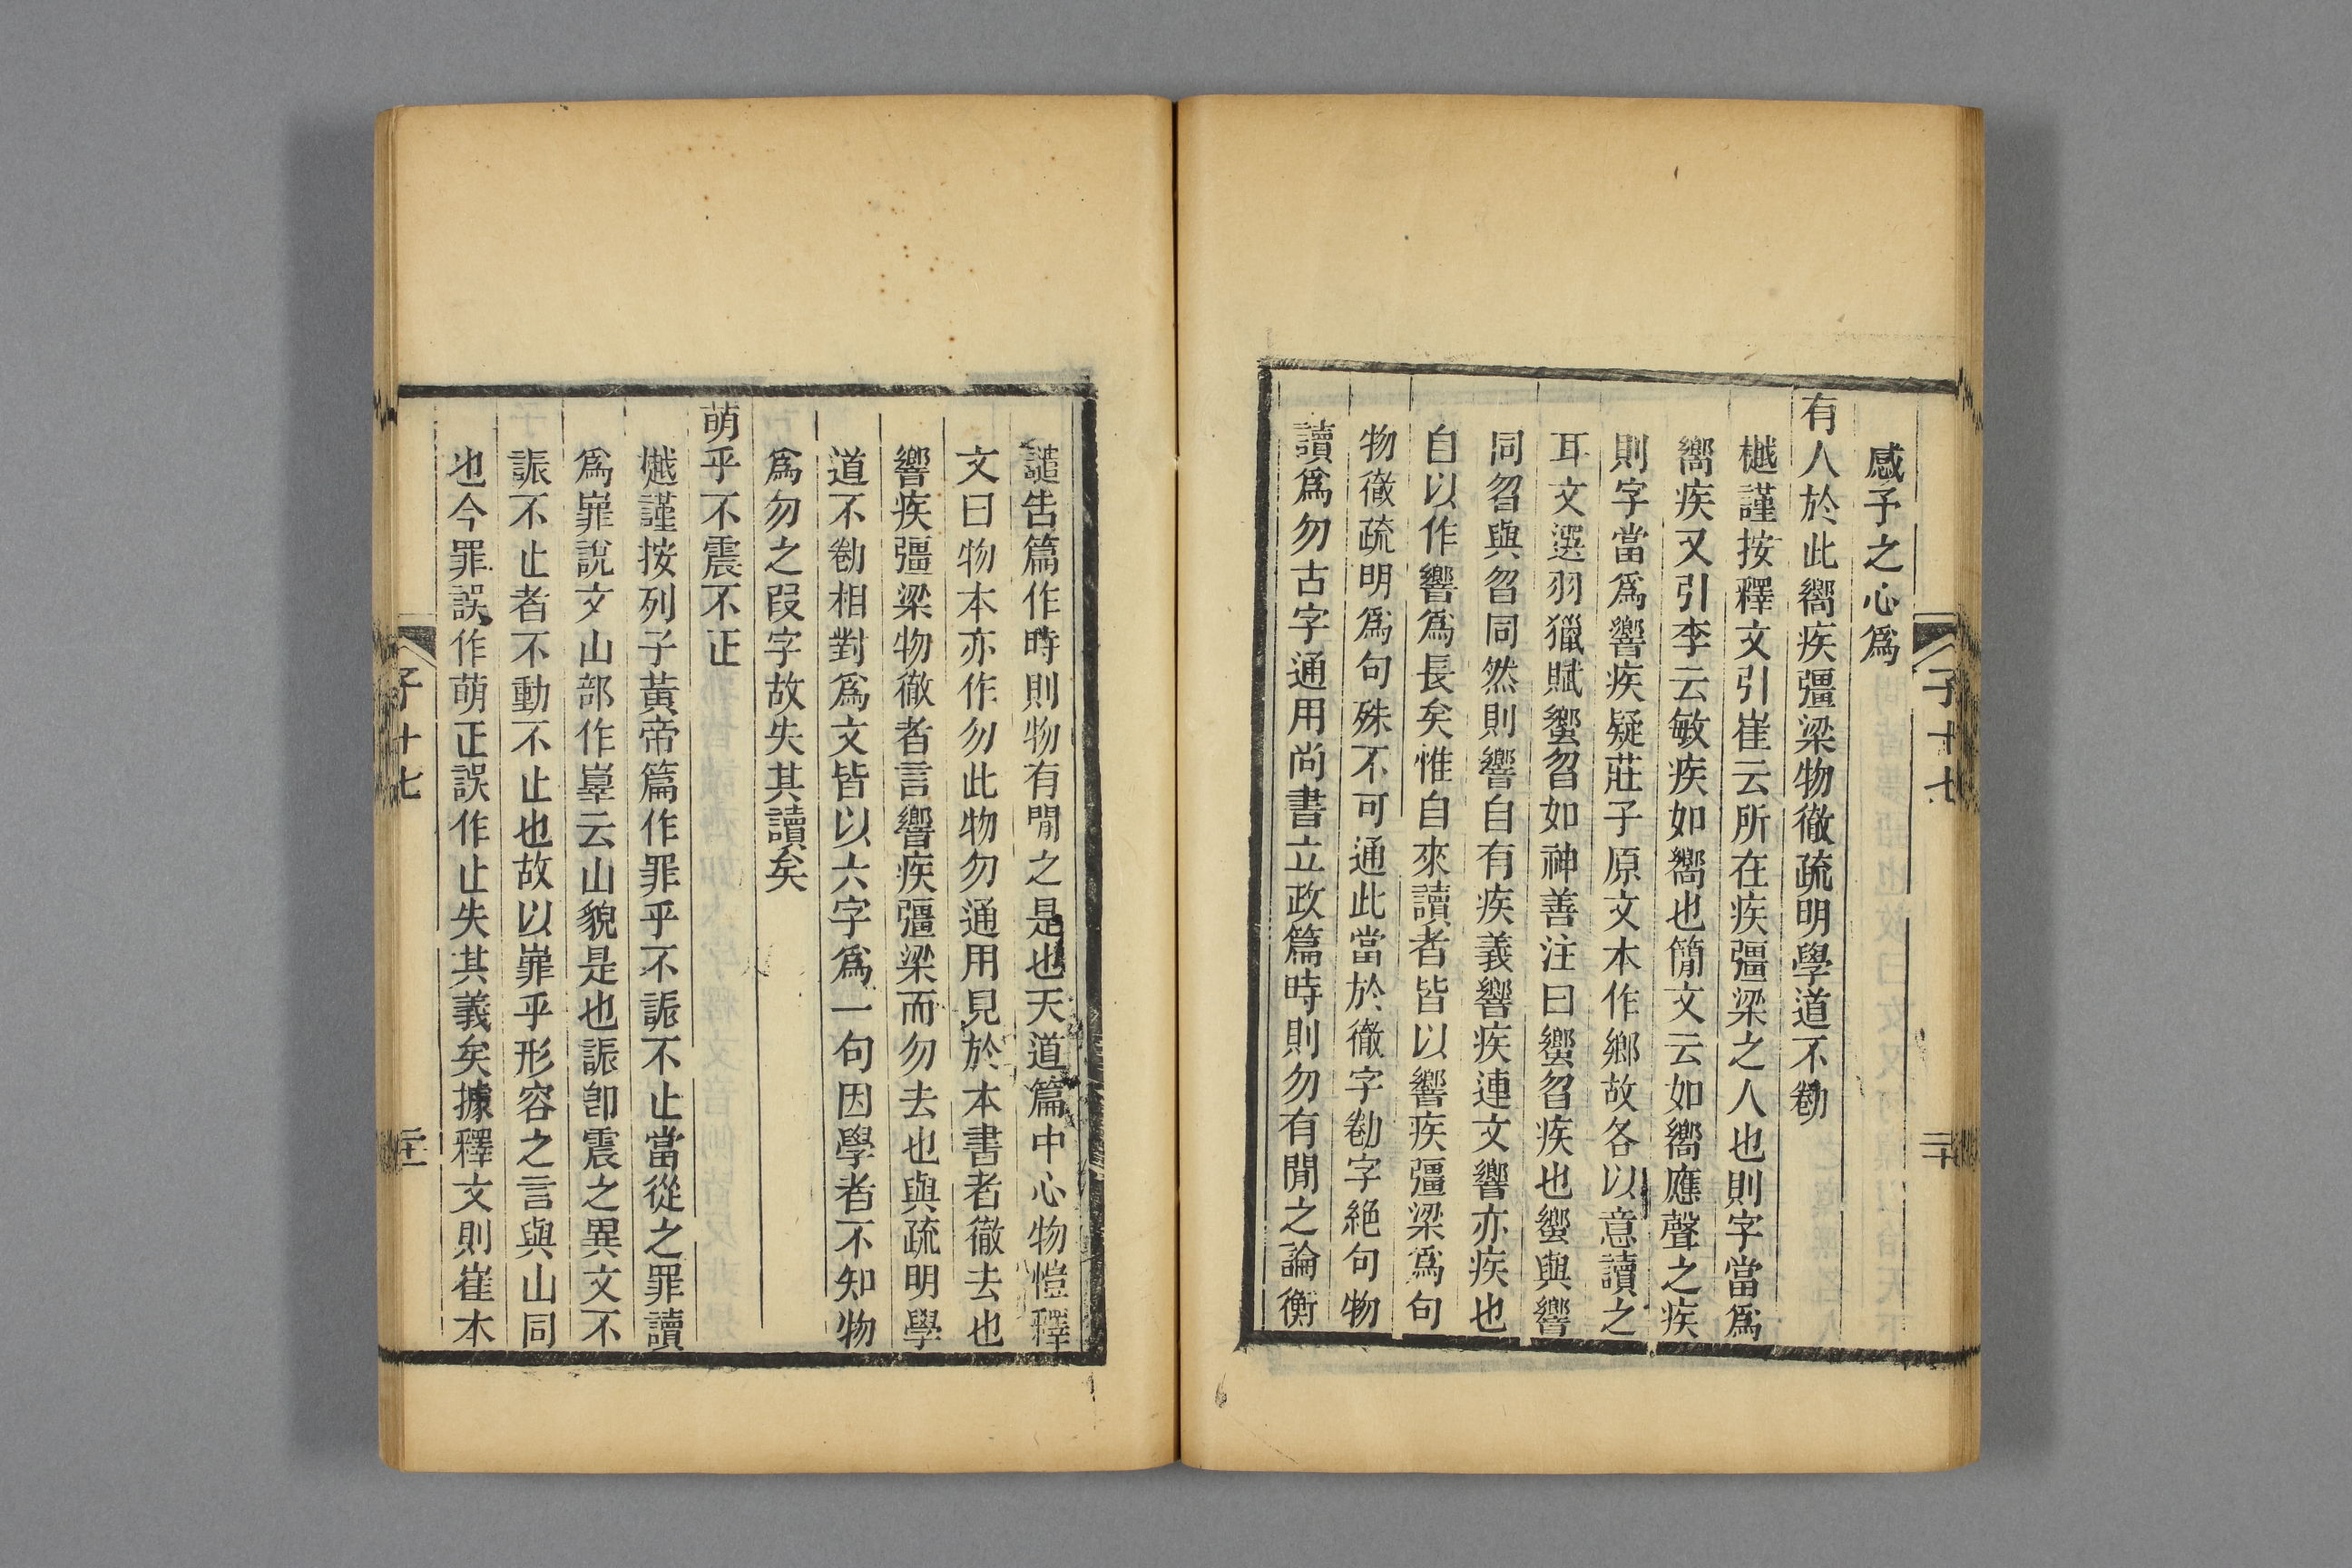 感予之心爲
有人於此嚮疾彊梁物徹疏明學道不勌
樾謹按釋文引崔云所在疾彊梁之人也則字當爲
嚮疾又引李云敏疾如嚮也簡文云如嚮應聲之疾
則字當爲響疾疑莊子原文本作鄉故各以意讀之
耳文選羽獵賦蠁曶如神善注曰蠁曶疾也蠁與響
同曶與曶同然則響自有疾義響疾連文響亦疾也
自以作響爲長矣惟自來讀者皆以響疾彊梁爲句
物徹疏明爲句殊不可通此當於徹字勌字絕句物
讀爲勿古字通用尚書立政篇時則勿有閒之論衡
子十七
二十
譴告篇作時則物有閒之是也天道篇中心物愷釋
文曰物本亦作勿此物勿通用見於本書者徹去也
響疾彊梁物徹者言響疾彊梁而勿去也與疏明學
道不勌相對爲文皆以六字爲一句因學者不知物
爲勿之叚字故失其讀矣
萌乎不震不正
樾謹按列子黃帝篇作罪乎不誫不止當從之罪讀
爲嶊說文山部作嶵云山貌是也誫卽震之異文不
誫不止者不動不止也故以嶊乎形容之言與山同
也今罪誤作萌正誤作止失其義矣據釋文則崔本
子十七
二十一